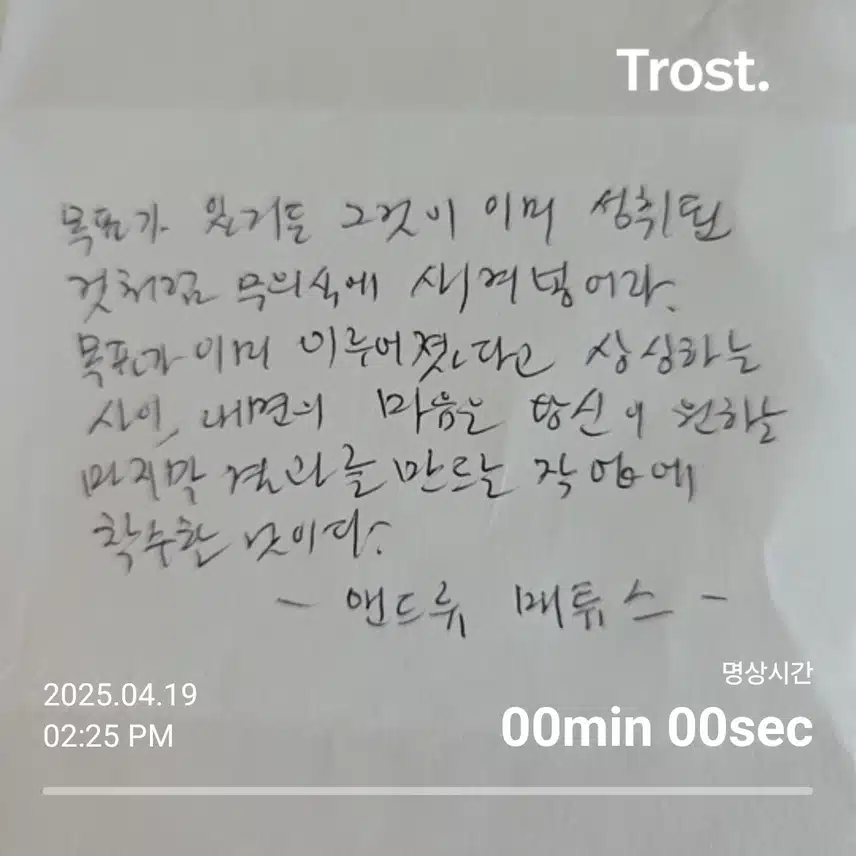 Trost.
목표가 있거든 그것이 이미 성취된
것처럼 무의식에 새겨넣어라.
목표가 이미 이루어졌다고 상상하는
사이, 내면의 마음은 당신이 원하는
마지막 결과를 만드는 작업에
착수한 것이다.
- 앤드류 매튜스 -
명상시간
2025.04.19
00min 00sec
02:25 PM